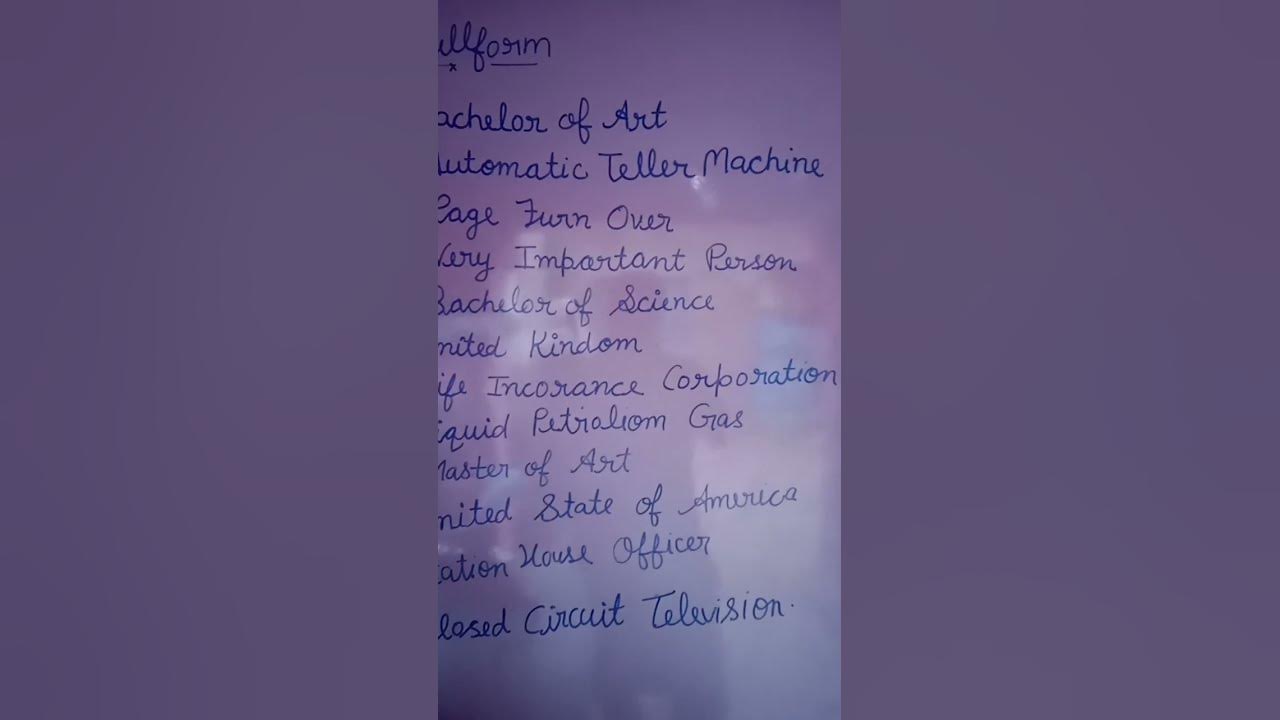 ullform
achelor of Art
Automatic Teller Machine
Page Turn Over
Very Impartant Person
Bachelor of Science
nited Kindom
ife Incorance Corporation
iquid Petraliom Gas
Master of Art
nited State of America
tation House Officer
losed Circuit Television.